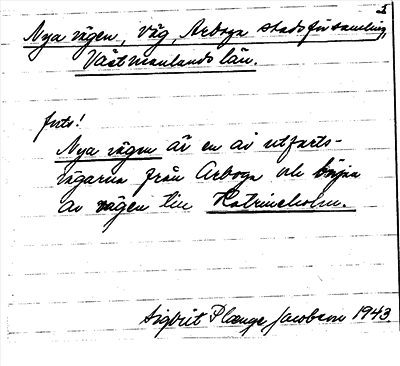 2
Nya vägen, väg, Arboga stadsförsamling,
Västmanlands län.
forts!
Nya vägen är en av utfarts-
vägarna från Arboga och början
av vägen till Katrineholm.
Sigbrit Plænge Jacobson 1943